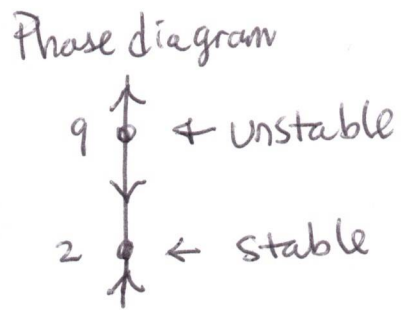 Phase diagram
9 ← unstable
2 ← stable